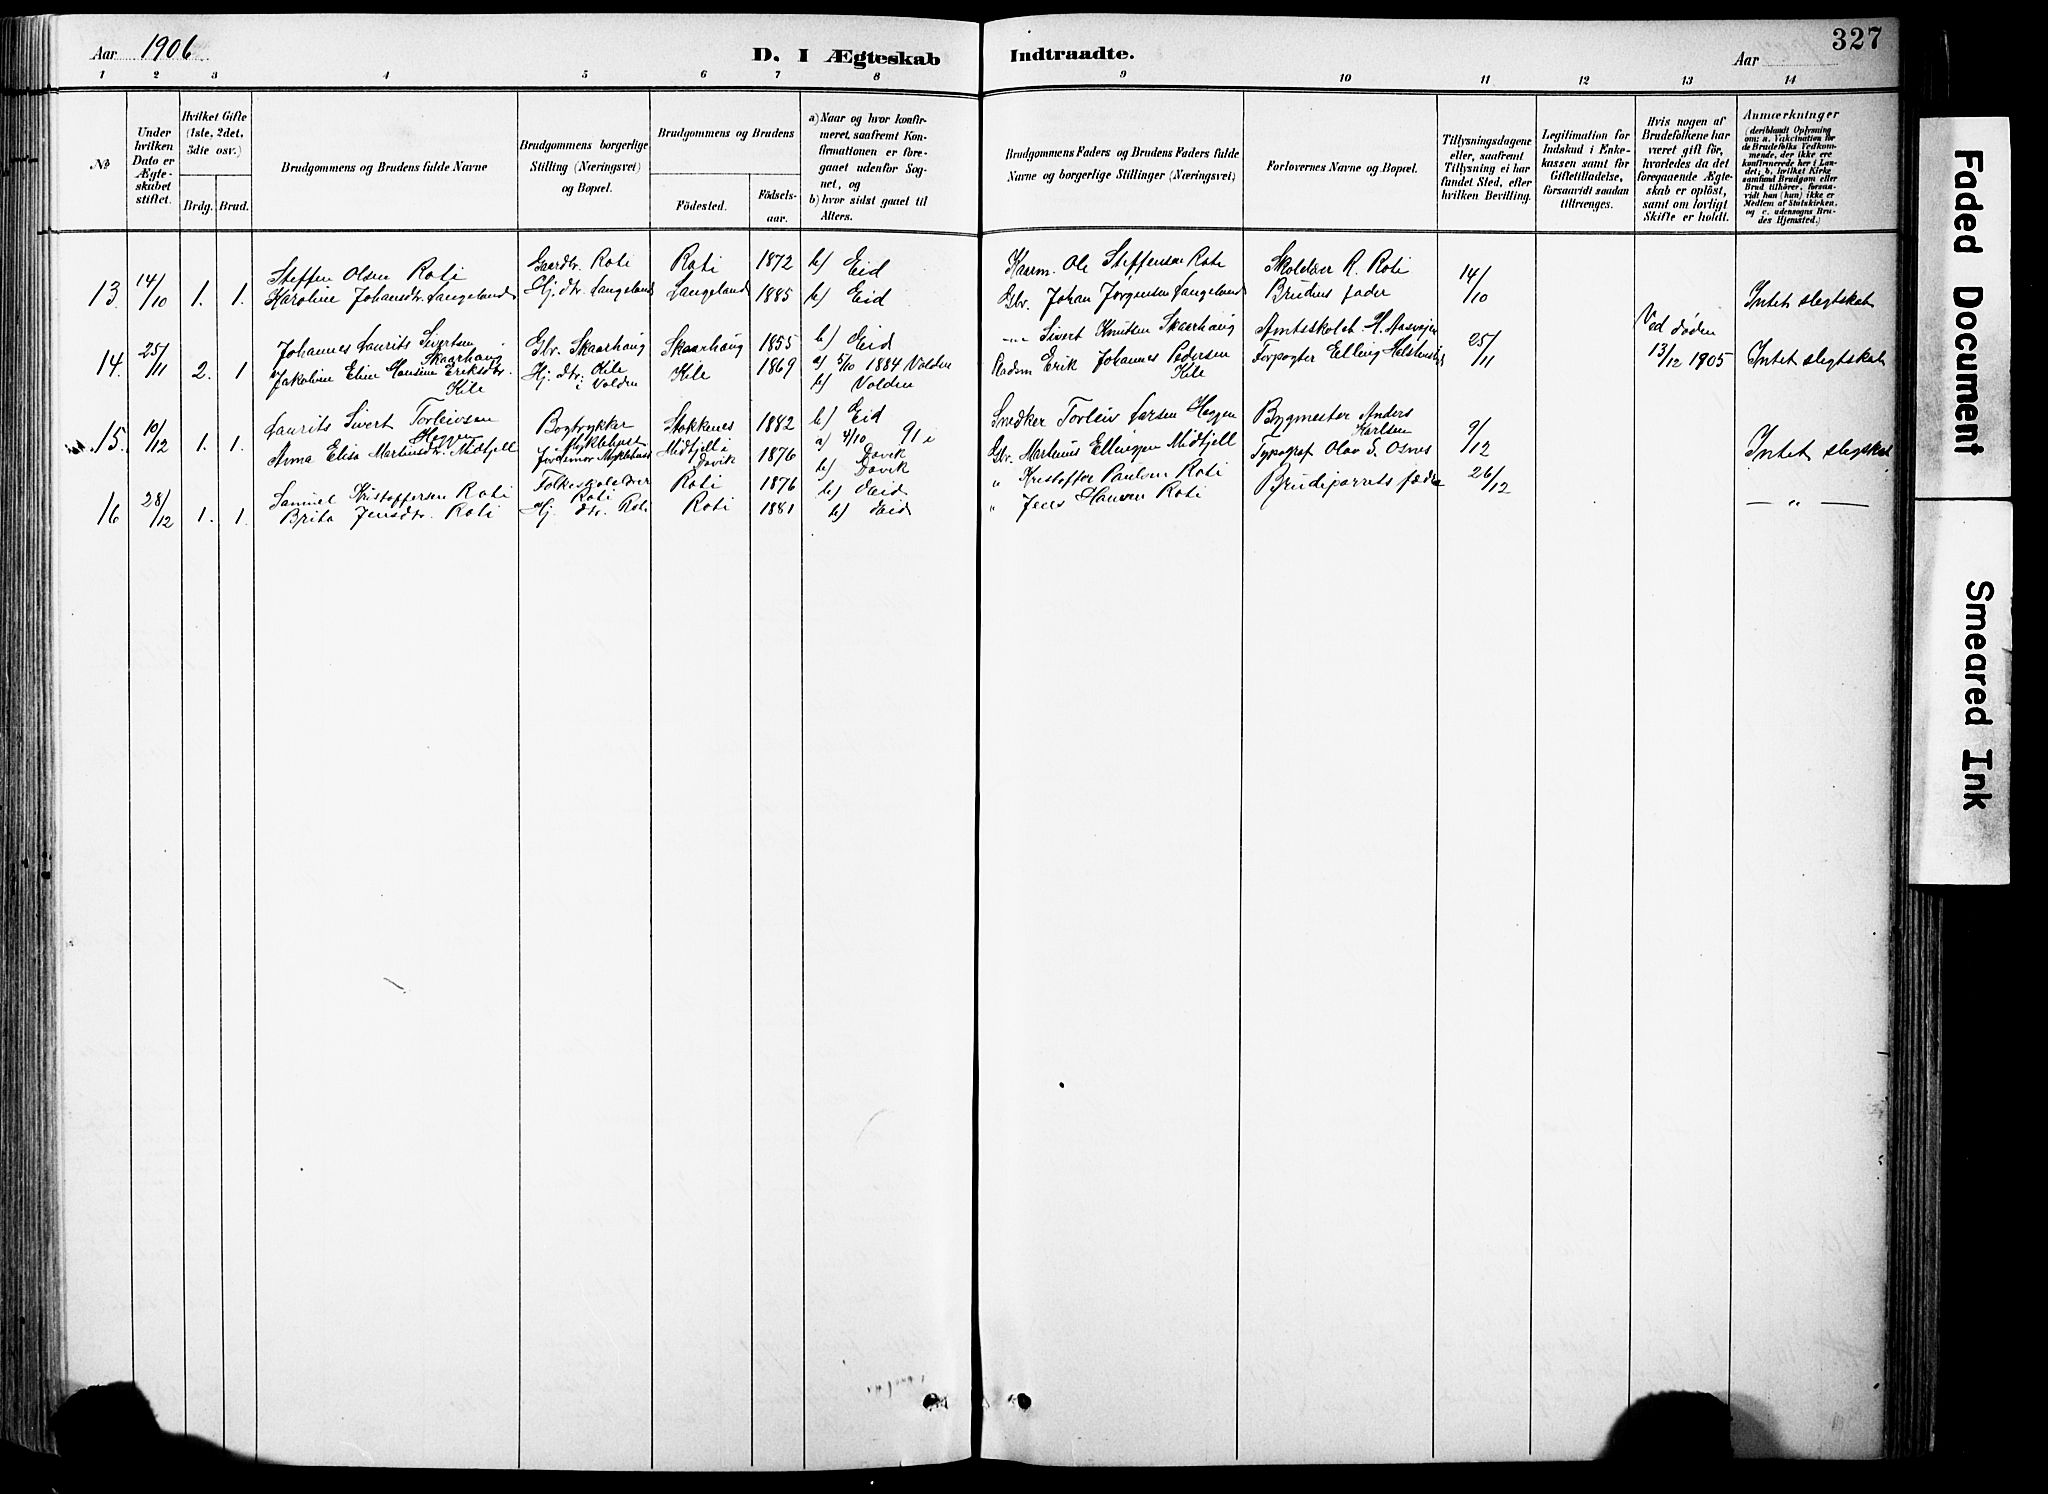 Aar 1906
D. I Ægteskab Indtraadte.
Aar
327
1 2 3 4 5 6 7 8 9 10 11 12 13 14
No
Under hvilken Dato er Ægteskabet stiftet.
Hvilket Gifte (1ste, 2det, 3die osv.)
Brdg. Brud.
Brudgommens og Brudens fulde Navne
Brudgommens borgerlige Stilling (Næringsvei) og Bopæl.
Brudgommens og Brudens
Fødested. Fødselsaar.
a) Naar og hvor konfirmeret, saafremt Konfirmationen er foregaaet udenfor Sognet, og
b) hvor sidst gaaet til Alters.
Brudgommens Faders og Brudens Faders fulde Navne og borgerlige Stillinger (Næringsvei)
Forlovernes Navne og Bopæl.
Tillysningsdagene eller, saafremt Tillysning ei har fundet Sted, efter hvilken Bevilling.
Legitimation for Indskud i Enkekassen samt for Giftetilladelse, forsaavidt saadan tiltrænges.
Hvis nogen af Brudefolkene har været gift før, hvorledes da det foregaaende Ægteskab er opløst, samt om lovligt Skifte er holdt.
Anmærkninger
(deriblandt Oplysning om: a. Vakcination for de Brudefolks Vedkommende, der ikke ere konfirmerede her i Landet; b. hvilket Kirkesamfund Brudgom eller Brud tilhører, forsaavidt han (hun) ikke er Medlem af Statskirken, og c. udensogns Brudes Hjemsted.)
13 14/10 1. 1. Steffen Olsen Roti Gaardbr. Roti Roti 1872 b) Eid Kaarm. Ole Steffensen Roti Skolelær R. Roti 14/10
Karoline Johansdtr. Langeland Hj. dtr. Langeland Langeland 1885 b) Eid Gbr. Johan Jørgensen Langeland Brudens fader Intet slegtskab
14. 25/11 2. 1 Johannes Laurits Sivertsen Skaarhaug Gbr. Skaarhaug Skaarhaug 1855 b) Eid Sivert Knutsen Skaarhaug Amtsskolel. 25/11 Ved døden 13/12 1905 Intet slegtskab
Jakobine Eline Hansine Eriksdtr. Kile Hj. dtr. Kile i Volden Kile 1869 a) 5/10 1884 Volden b) Volden Erik Johannes Pedersen Kile Forpagter Elling
15. 10/12 1. 1. Laurits Sivert Torleivsen Heggen Bogtrykker Myklebust Stokkenes 1882 b) Eid Snedker Torleiv Larsen Heggen Bygmester Anders Karlsen 9/12
Anna Elise Martinusdtr. Midtfjell Jordmor Myklebust Midtfjell i Davik 1876 a) 4/10 91 i Davik b) Davik Gbr. Martinus Ellingsen Midtfjell Typograf Olav S. Osnes Intet slegskab
16 28/12 1. 1. Samuel Kristoffersen Roti Folkeskolelærer Roti Roti 1876 b) Eid " Kristoffer Paulsen Roti Brudeparrets fædre 26/12
Brita Jensdtr. Roti Hj. dtr. Roti Roti 1881 b) Eid " Jens Hansen Roti — " —
Faded Document
Smeared Ink